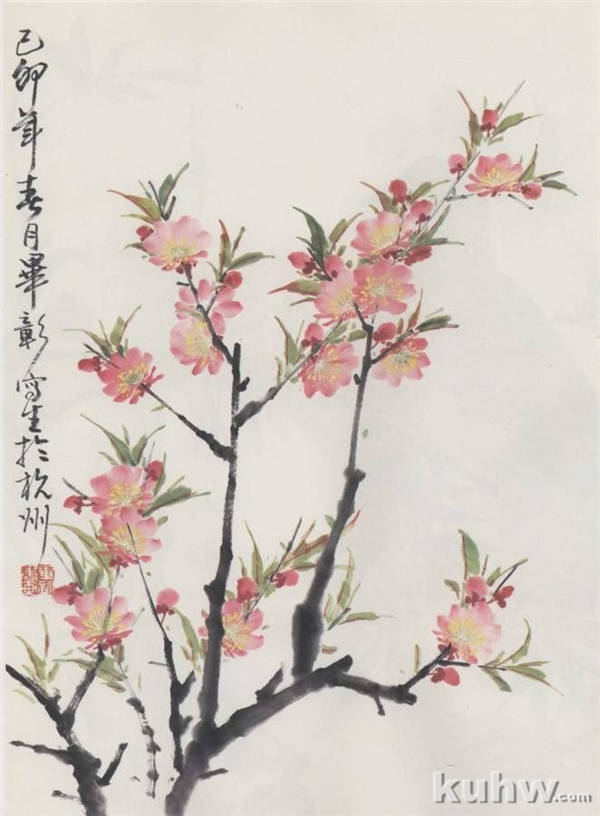 己卯年春月畢彰寫生於杭州
kuhw.com